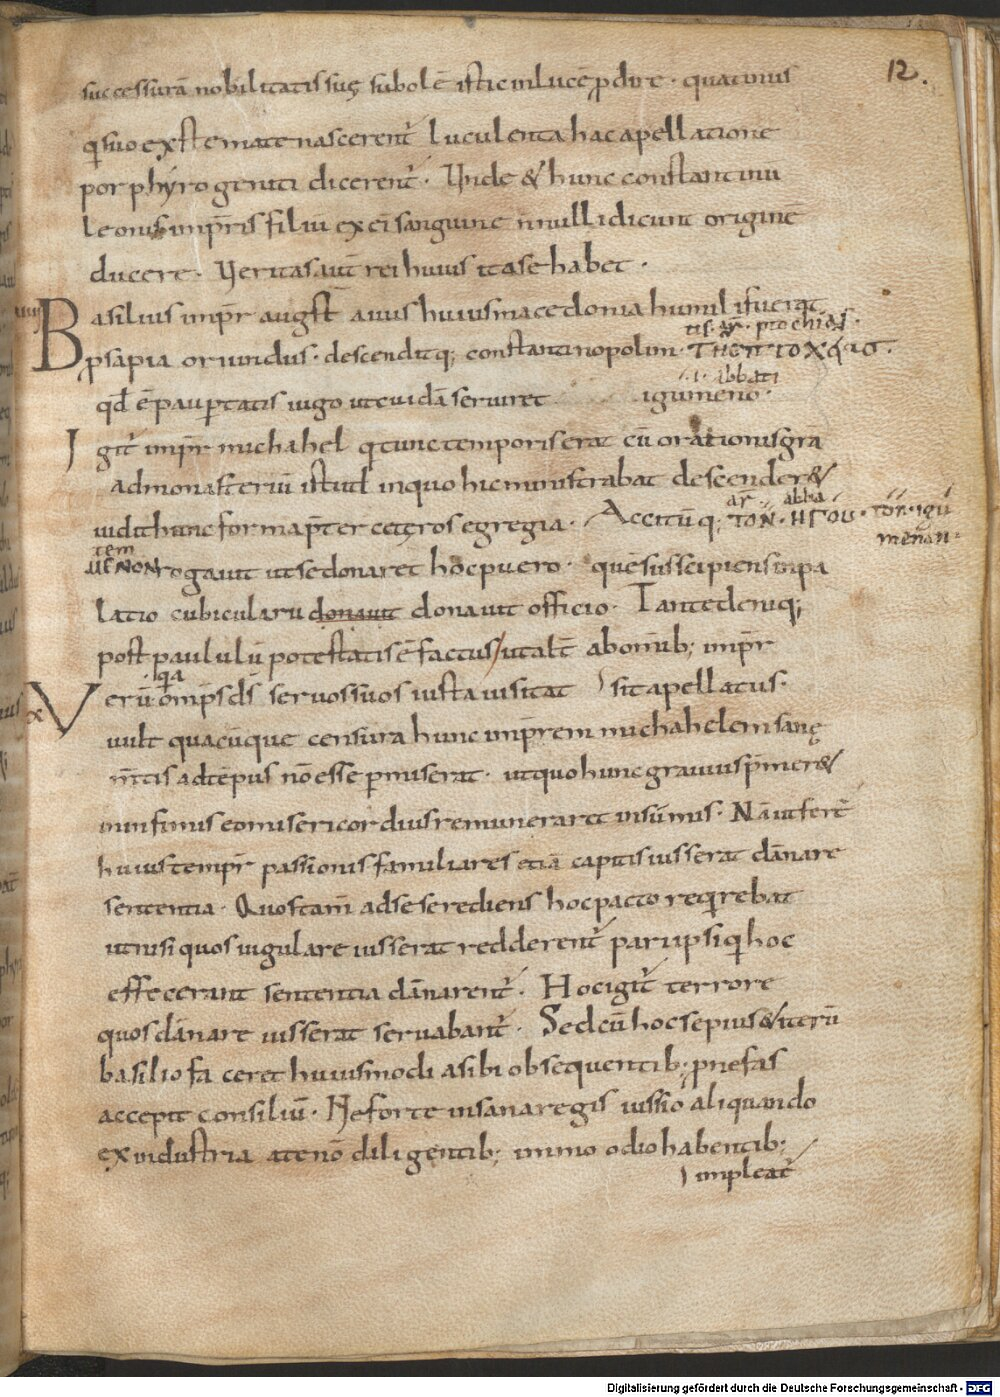 12.
successurā nobilitatis suę subolē istic in lucē ꝓdire · quatinus
q̇ suo ex stemate nascerent᷑ luculenta hac apellatione
porphyrogeniti dicerent᷑ · Unde & hunc constantinū
leonis imp̄ris filiū ex ei᷑ sanguine nnulli dicunt originē
ducere · Ueritas aut̄ rei huius ita se habet ·
Basilius imp̄r augst̄ auus huius macedonia humili fuerat
tis · ar · ptochias ·
ꝓsapia oriundus · descenditq; constantinopolim · ΤΗϹ ΠΤΟΧ&ΙΑϹ ·
·i· abbati
qđ ē pauꝑtatis iugo ut cuidā seruiret igumeno ·
Igit᷑ imp̄r michahel q tunc temporis erat cū orationis gr̄a
ad monasteriū istud in quo hic ministrabat descender&
ar · abba
uidit hunc forma p̄ter cęteros egregia · Accitūq; ΤΟΝ · ΗΓΟΥ · ton · igu
menon ·
tem
ΜΕΝΟΝ rogauit ut se donaret hoc puero · quē suscipiens in pa
latio cubicularii donauit donauit officio · Tante deniq;
post paululū potestatis ē factus / ut alt᷑ ab omīb; imp̄r
qa
Verū omp̄s d̄s seruos suos iusta uisitat ) sit apellatus ·
uult quacūque censura hunc imp̄rem michahelem sanę
m̄tis ad tēpus nō esse ꝑmiserat · ut quo hunc grauius p̄mer&
in infimis eo misericordius remuneraret in sūmis · Nā ut fert᷑
huius temp̄r passionis familiares etiā capitis iusserat dānare
sententia · Quos tam̄ ad se se rediens hoc pacto reqrebat
ut nisi quos iugulare iusserat redderent᷑ pari ipsi q hoc
effecerant sententia dānarent᷑ · Hoc igit᷑ terrore
quos dānare iusserat seruabant᷑ · Sed cū hoc sepius & iterū
basilio faceret huiusmodi a sibi obsequentib; ꝓ nefas
accepit consiliū · Ne forte insana regis iussio aliquando
ex industria a te nō diligentib; immo odio habentib;
) impleat᷑
Digitalisierung gefördert durch die Deutsche Forschungsgemeinschaft - DFG